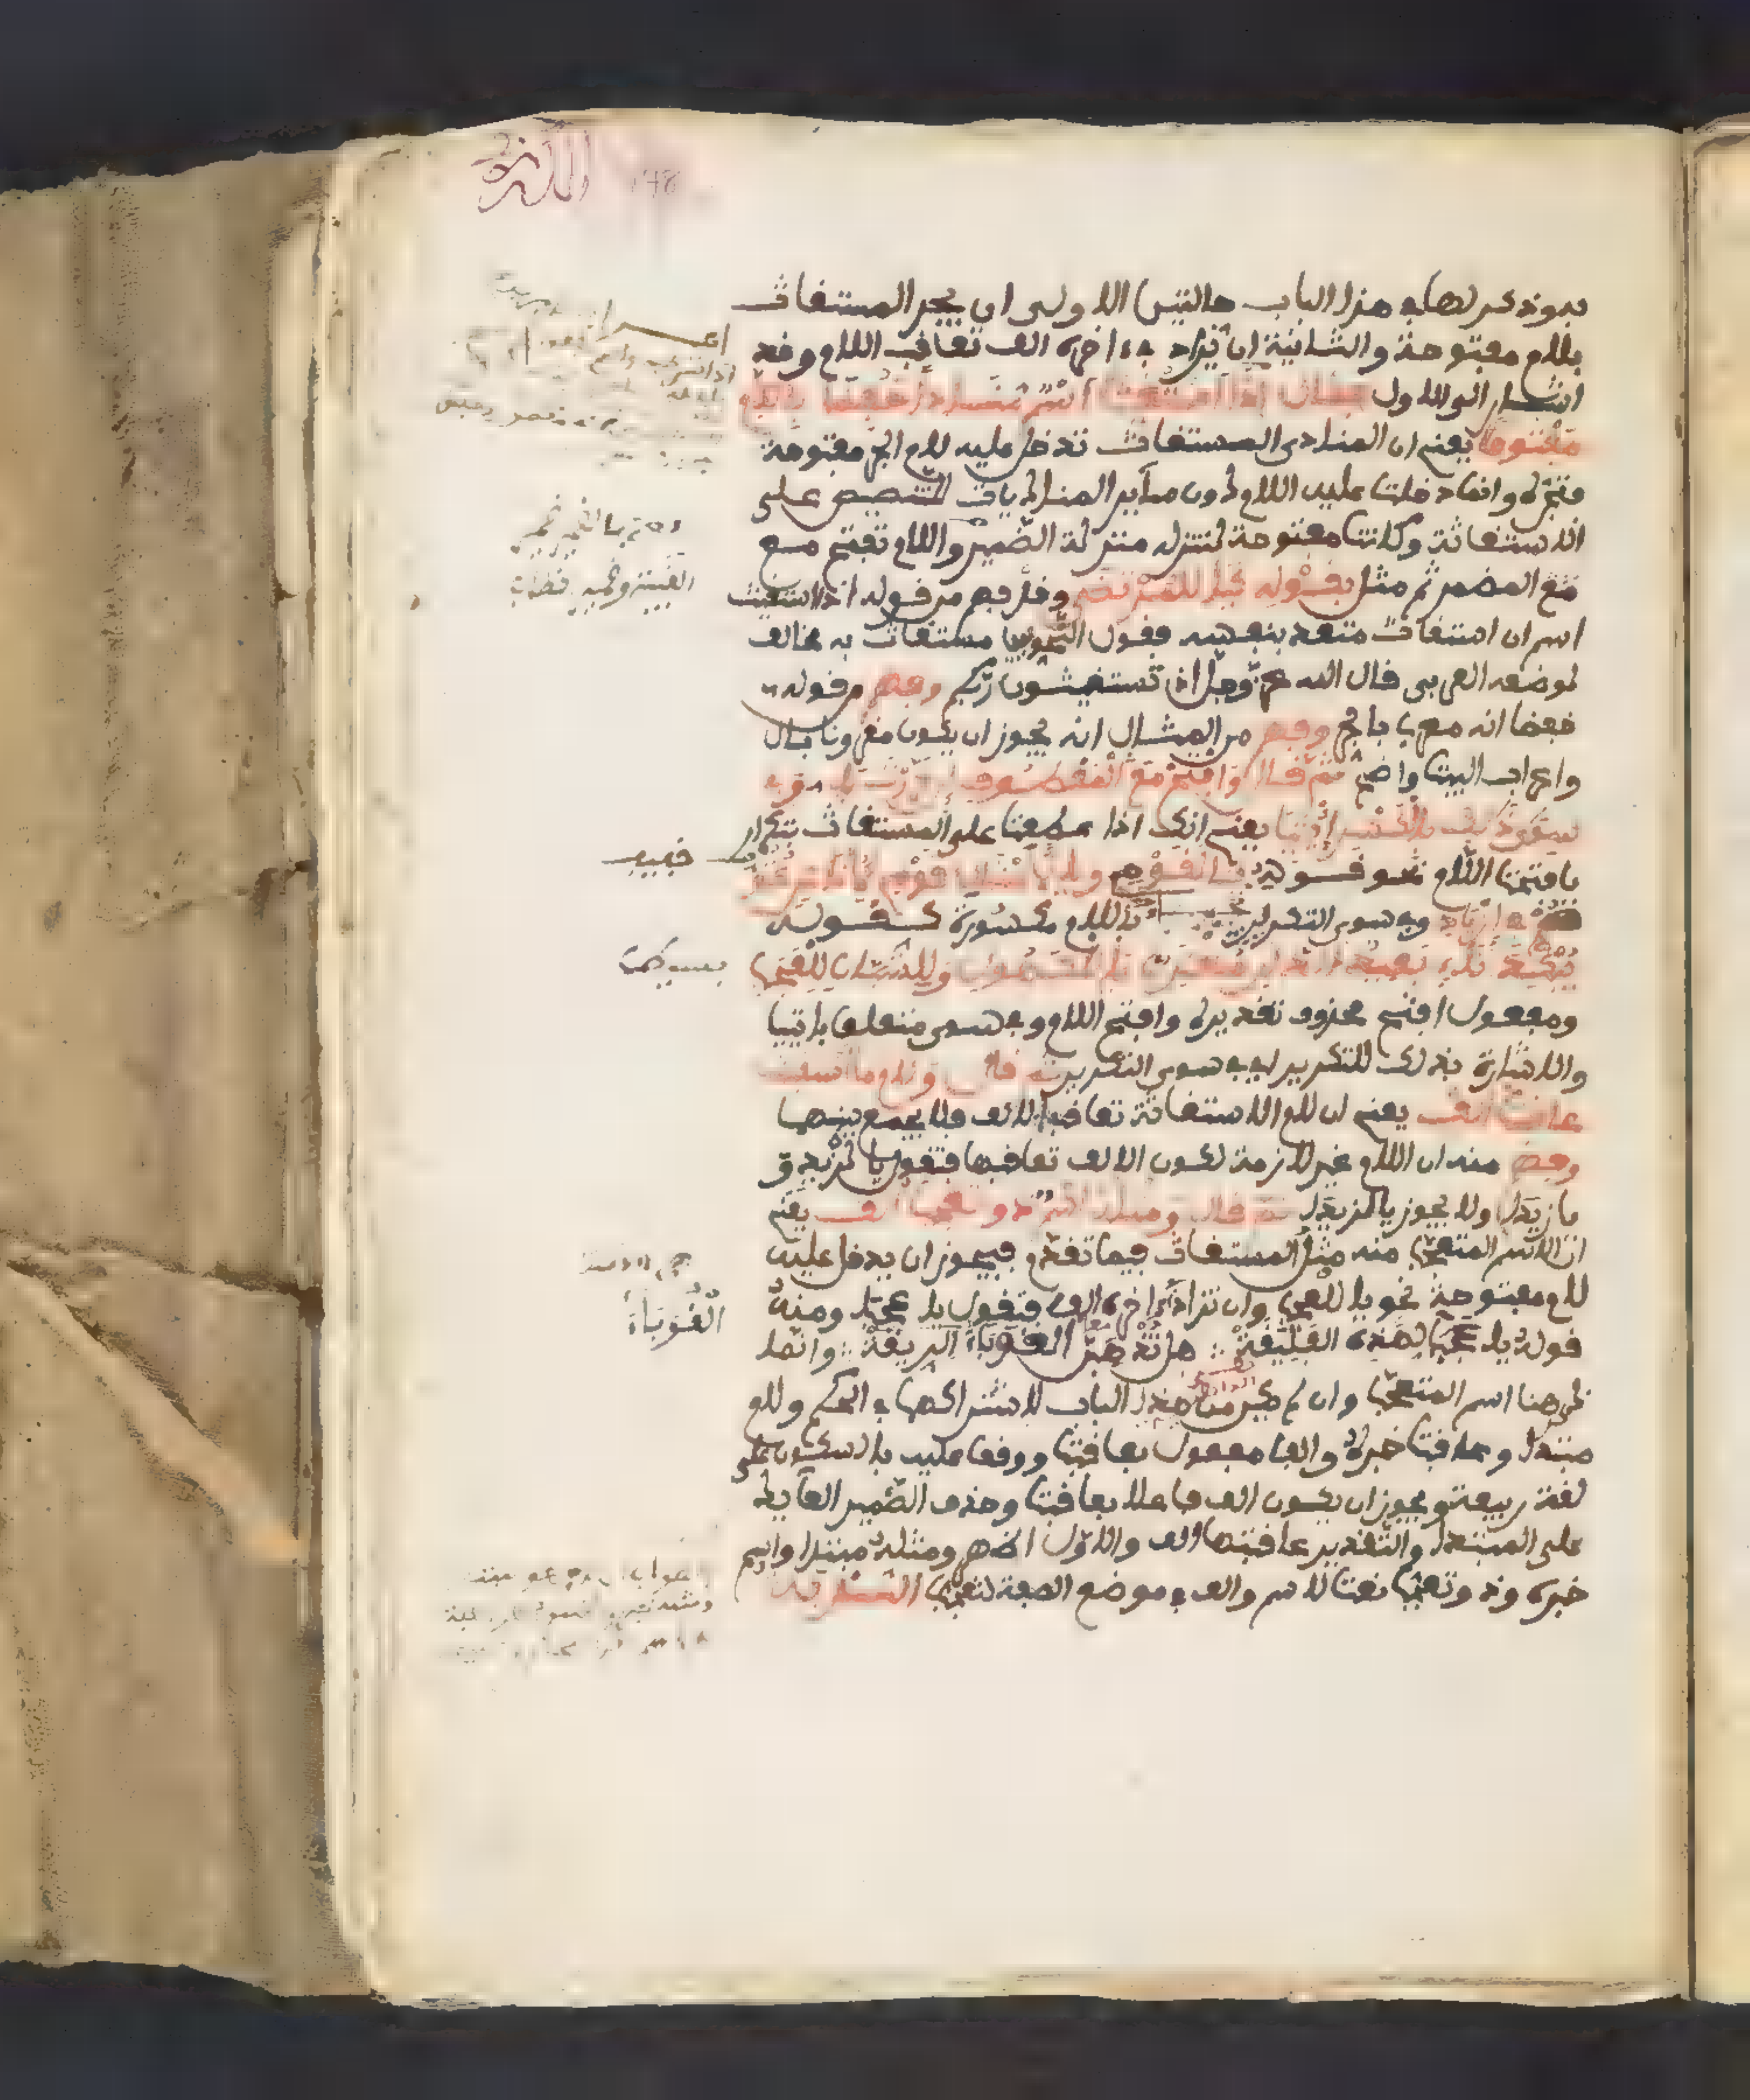 وذكر لها في هذا الباب حالتين الاولى ان يجر المستغاث
بلام مفتوحة والثانية ان تزاد في ءاخره الف تعاقب اللام وقد
اشار الى الاول فقال اذا استغيث اسم منادى خفضا باللام
مفتوحا يعني ان المنادى المستغاث تدخل عليه لام الجر مفتوحة
فتجره وانما دخلت عليه اللام دون ساير المناديات للتنصيص على
الاستغاثة وكانت مفتوحة لتنزله منزلة الضمير واللام تفتح مع
مع المضمر ثم مثل بقوله كيا للمرتضى وفهم من قوله اذا استغيث
اسم ان استغاث متعد بنفسه فقول النحويين مستغاث به مخالف
لوضعه العربي قال الله عز وجل اذ تستغيثون ربكم وفهم من قوله
خفضا انه معرب بالجر وفهم من المثال انه يجوز ان يكون مقرونا بال
واعراب البيت واضح ثم قال وافتح مع المعطوف ان كررت يا وفي
سوى ذلك بالكسر ائتيا يعني انك اذا عطفت على المستغاث بتكرار
يا فتحت اللام نحو قوله يا لقومي ويا لامثال قومي لاناس عتوهم
في ازدياد وفي سوى التكرير باللام مكسورة كقوله
يبكيك ناء بعيد الدار مغترب يا للكهول وللشبان للعجب
ومفعول افتح محذوف تقديره وافتح اللام وفي سوى متعلق بائتيا
والاشارة بذلك للتكرير اي في سوى التكرير ثم قال ولام ما استغيث
عاقبت الف يعني ان لام الاستغاثة تعاقب الالف فلا يجمع بينهما
وفهم منه ان اللام غير لازمة لكون الالف تعاقبها فتقول يا لزيد و
يا زيدا ولا يجوز يا لزيدا ثم قال ومثله اسم ذو تعجب الف يعني
ان الاسم المتعجب منه مثل المستغاث فيما تقدم فيجوز ان يدخل عليه
لام مفتوحة نحو يا للعجب وان تزاد في اخره الف فتقول يا عجبا ومنه
قوله يا عجبا لهذه الفليقة هل تذهبن القوباء الريقة وانما
ذكر هنا اسم المتعجب وان لم يكن من هذا الباب لاشتراكهما في الحكم ولام
مبتدا وعاقبت خبره والف مفعول بعاقبت ووقف عليه بالسكون على
لغة ربيعة ويجوز ان يكون الف فاعلا بعاقبت وحذف الضمير العايد
على المبتدا والتقدير عاقبتها الف والاول اظهر ومثله مبتدا واسم
خبره وذو تعجب نعت للاسم والف في موضع الصفة لتعجب الندبة
القوباء